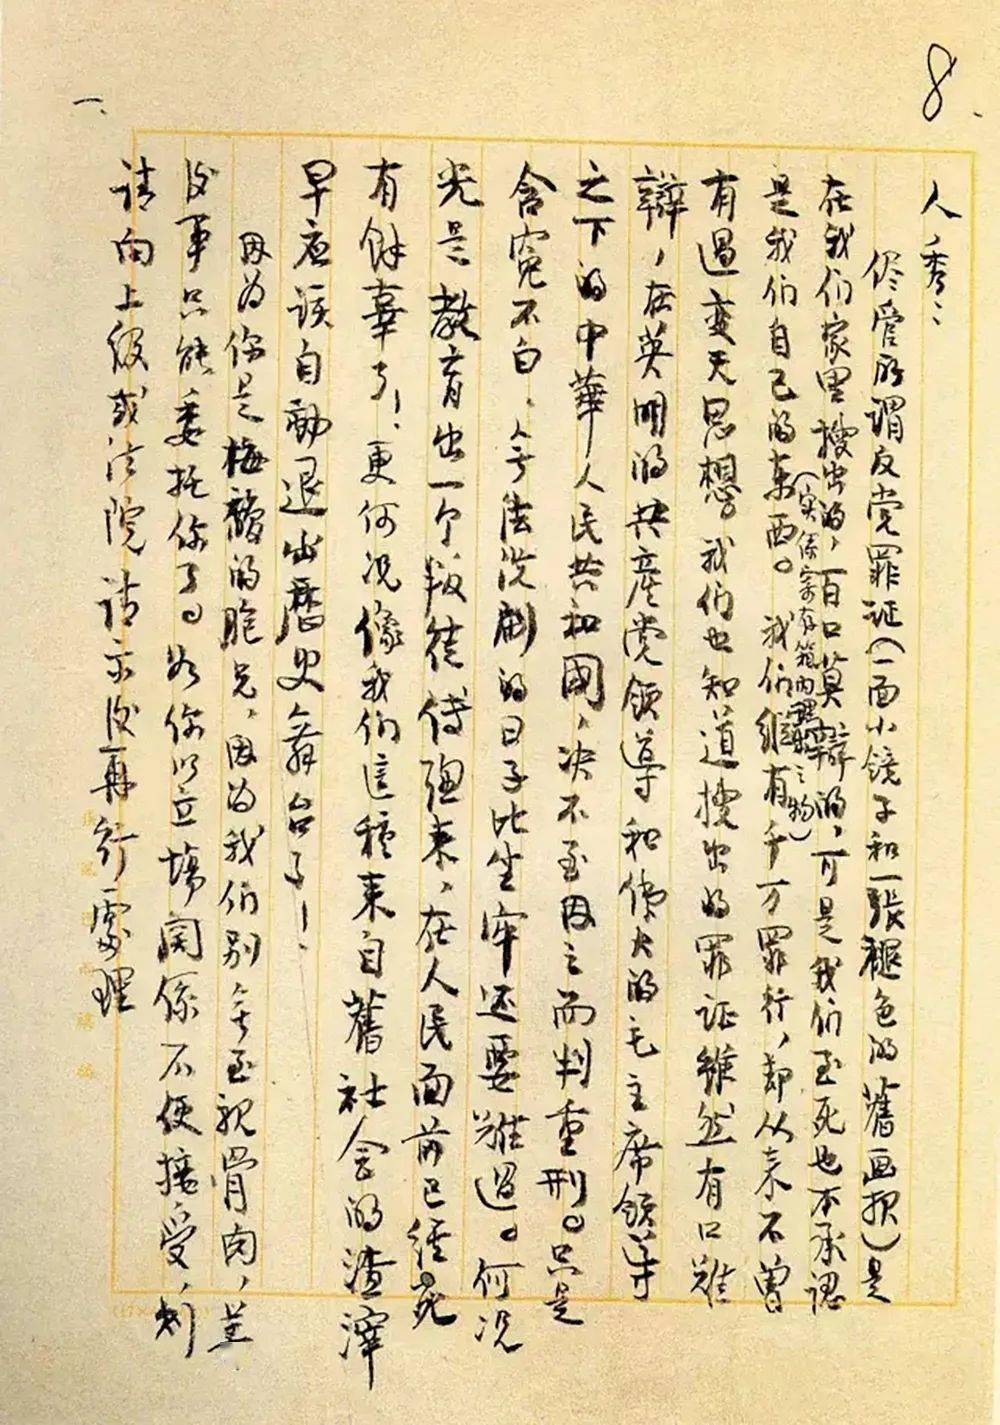 8
一、
人秀：
侭管所谓反党罪证（一面小镜子和一張褪色的舊画报）是
在我们家里搜出的，百口莫辯的，可是我们至死也不承認
（实係寄存箱内理出之物）
是我们自己的东西。我们纵有千万罪行，却从来不曾
有過变天思想。我们也知道搜出的罪证虽然有口难
辯，在英明的共產党领导和偉大的毛主席领导
之下的中華人民共和國，决不至因之而判重刑。只是
含寃不白，無法洗刷的日子比坐牢还要难過。何况
光是教育出一个叛徒傅聰来，在人民面前已经死
有餘辜了！更何况像我们這種来自舊社会的渣滓
早应该自動退出歷史舞台了！
因为你是梅馥的胞兄，因为我们别無至親骨肉，善
後事只能委托你了。如你以立場関係不便接受，则
请向上级或法院请示後再行處理